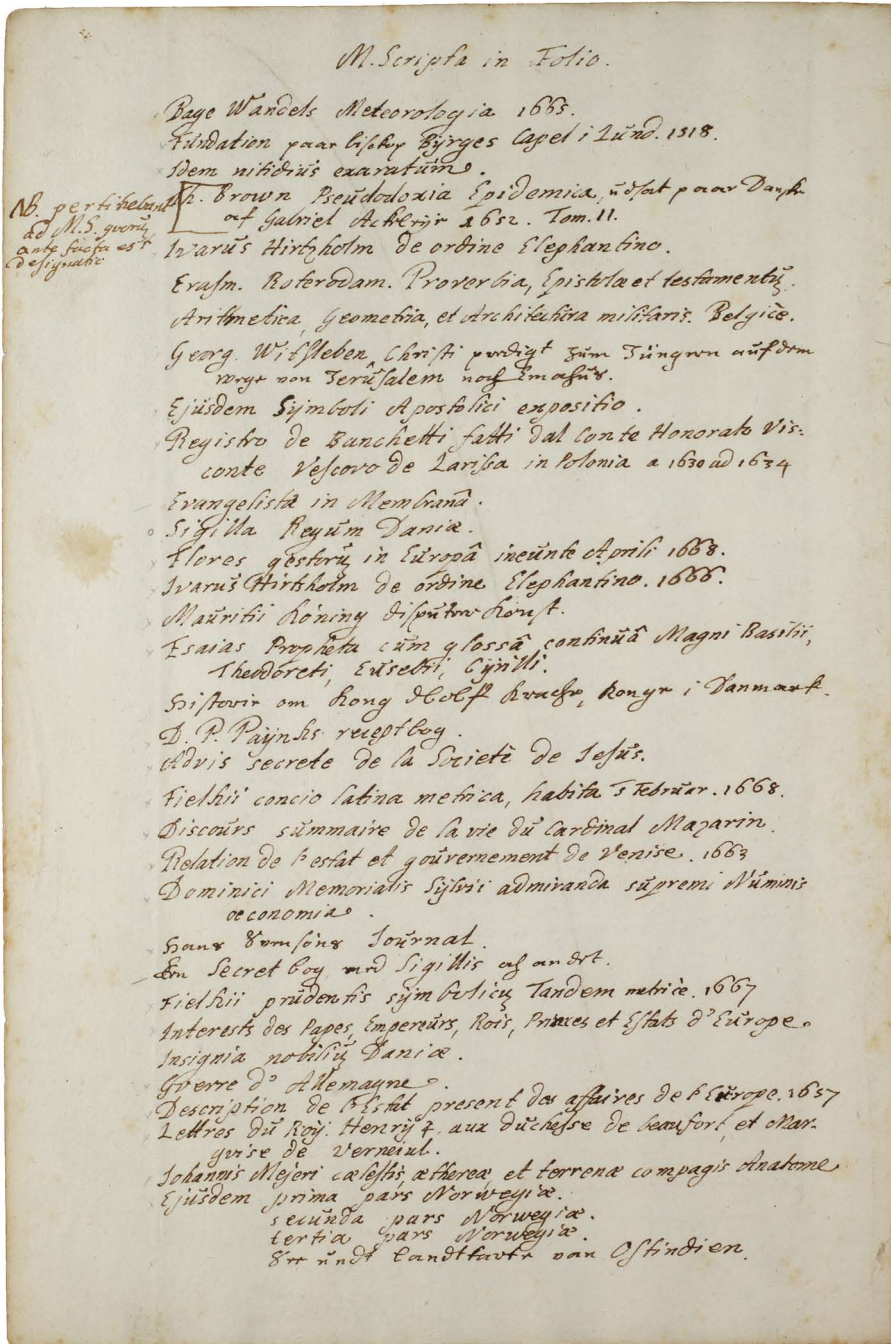 M. Scripta in Folio.
Bage Wandels Meteorologia 1665.
Fundation paa biskop Byrges Capel i Lund. 1518.
Idem nitidius exaratum.
NB. pertinebant
ad M.S. qvorū
ante facta est
designatio
Th. Brown Pseudodoxia Epidemica, udsat paa Dansk
af Gabriel 1652. Tom. II.
Ivarus Hirtzholm de ordine Elephantino.
Erasm. Roterodam. Proverbia, Epistolæ et testamentū.
Arithmetica, Geometria, et Architectura militaris. Belgicè.
Georg. Witzleben, Christi predigt zum Jüngern auf dem
wege von Jerûsalem nach Emahus.
Ejusdem Symboli Apostolici expositio.
Registro de Banchetti fatti dal Conte Honorato Vis:
conte Vescovo de Larissa in Polonia a 1630 ad 1634
Evangelista in Membranâ.
Sigilla Regum Daniæ.
Flores gestorū in Europâ ineunte Aprili 1668.
Ivarus Hirtsholm de ordine Elephantino. 1666.
Mauritii Köning disputer Konst.
Esaias Propheta cum glossâ continuâ Magni Basilii,
Theodoreti, Eusebii, Cyrilli.
Historie om Kong Rolff Krache, Konge i Danmark.
D. P. Paynks receptbog.
Advis secrete de la Societè de Jesus.
Fielhii concio latina metrica, habita 5 Februar. 1668.
Discours summaire de la vie du Cardinal Mazarin.
Relation de l'estat et gouvernement de Venise. 1663
Dominici Memorialis Sylvii admiranda supremi Numinis
oeconomia.
Hans Svensöns Journal.
En Secret bog med Sigillis och andet.
Fielhii prudentis symbolicū Tandem metricè. 1667
Interests des Papes, Empereurs, Rois, Princes et Estats d'Europe.
Insignia nobiliū Daniæ.
Gverre d'Allemagne.
Description de l'Estat present des affaires de l'Europe. 1657
Lettres du Roy Henry 4. aux duchesse de beaufort, et Mar-
qvise de Verneiul.
Johannis Mejeri cælestis, æthereæ, et terrenæ compagis Anatome
Ejusdem prima pars Norwegiæ.
secunda pars Norwegiæ.
tertia pars Norwegiæ.
See undt Landtkarte von Ostindien.